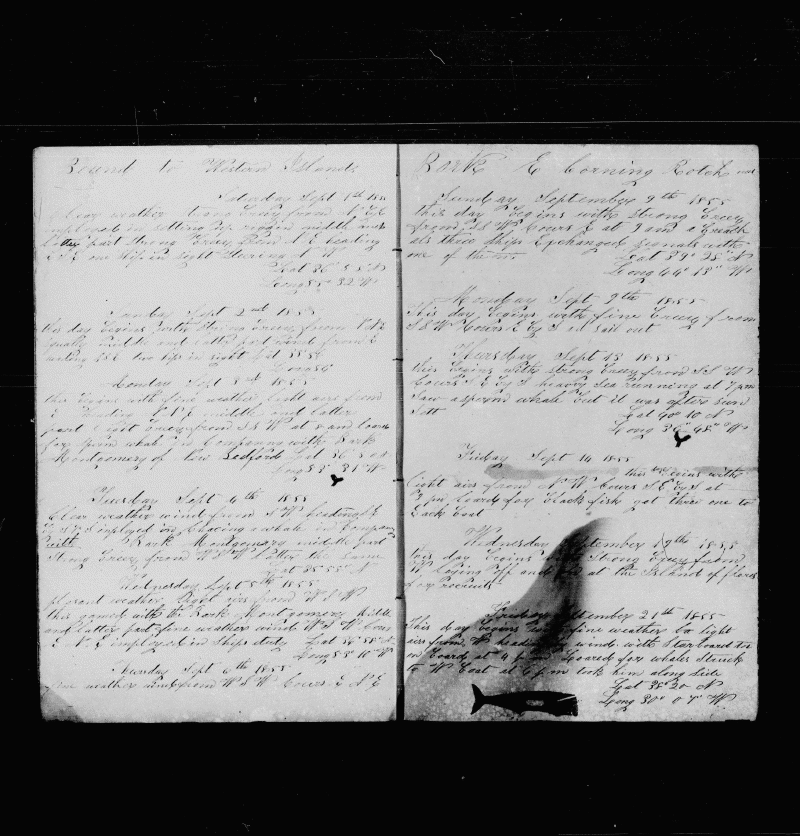 Bound to Western Islands
Saturday Sept 1st 185
Clear weather strong Breeze from N E
imployed in setting up riggin middle and
latter part Strong Breeze from N E heading
E S E one Ship in sight Stearing N W
Lat 36° 55 N
Long 55° 32 W
Sunday Sept 2nd 1855
this day Begins with Strong Breeze from
middle and latter part winds from E
Monday Sept 3rd 1855
this Begins with fine weather light airs from
E heading N N E middle and latter
part light from S W at 8 am lowered
for sperm whale in Company with Bark
Montgomery of New Bedford Lat 36
Long 53° 31 W
Tuesday Sept 4th 1855
Clear weather wind from S W heading E
By S imployed in Chaceing a whale in Company
with Bark Montgomery middle part
Strong Breeze from W S W latter the same
Lat 35° 55 N
Wednesday Sept 5th 1855
plesent weather light airs from W S W
this gamed with the Bark Montgomery Middle
and latter part fine weather wind W S W Cours
E N E imployed in Ships duty Lat 36° 58 N
Long 53° 10 W
Thursday Sept 6th 1855
fine weather wind from W S W Cours E N E
Bark E Corning Rotch
Sunday September 9th 1855
this day Begins with Strong Breeze
from S W Cours E at 9 am
three ships Exchanged signals with
one of them
Lat 39° 28 N
Long 44° 18 W
Monday Sept 9th 1855
This day Begins with fine Breeze from
S S W Cours E By S in sail out
Thursday Sept 13 1855
this Begins with strong Breeze from S S W
Cours S E By S heavy Sea running at 7 pm
Saw a sperm whale But it was after sun
Sett
Lat 40° 10 N
Long 36° 48 W
Friday Sept 14 1855
this Begins with
light airs from N W Cours S E By S at
2 pm lowered for Black fish got three one to
Each Boat
Wednesday September 19th 1855
this day Begins Strong Breeze from
W laying off and on at the Island of flores
for recruits
Friday September 21th 1855
This day Begins with fine weather But light
airs from W heading winds with Starboard tacks
on Board at 4 pm lowered for whales Struck
to W Boat at 6 pm took him along Side
Lat 38° 20 N
Long 30° 07 W